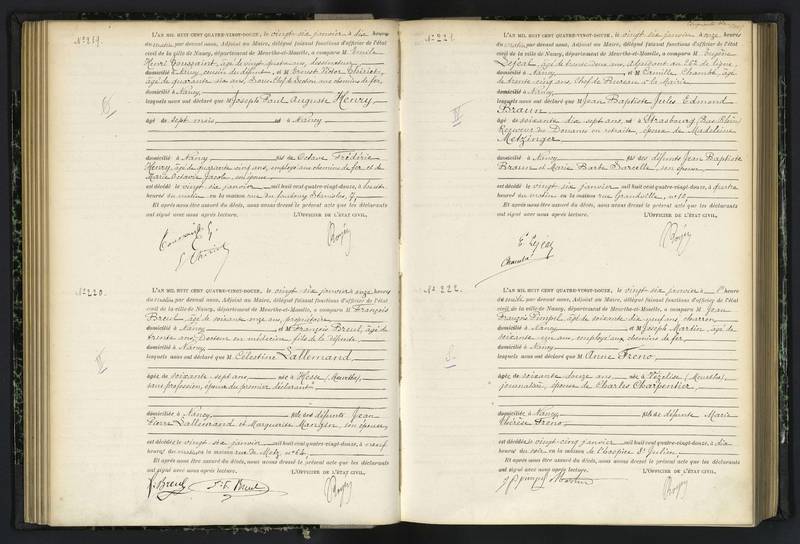 N° 219.
L'AN MIL HUIT CENT QUATRE-VINGT-DOUZE, le vingt six janvier à dix heures
du matin, par devant nous, Adjoint au Maire, délégué faisant fonctions d'officier de l'état
civil de la ville de Nancy, département de Meurthe-et-Moselle, a comparu M. Emile
Henri Toussaint, âgé de vingt quatre ans, dessinateur
domicilié à Nancy, cousin du défunt, et M Ernest Victor Thiriet,
âgé de quarante six ans, Sous Chef de Section aux chemins de fer,
domicilié à Nancy,
lesquels nous ont déclaré que M Joseph Paul Auguste Henry
âgé de sept mois né à Nancy
domicilié à Nancy fils de Octave Frédéric
Henry, âgé de quarante cinq ans, employé aux chemins de fer et de
Marie Octavie Jacob, son épouse
est décédé le vingt six janvier mil huit cent quatre-vingt-douze, à
heures du matin en la maison rue du faubourg Stanislas, 7,
Et après nous être assuré du décès, nous avons dressé le présent acte que les déclarants
ont signé avec nous après lecture. L'OFFICIER DE L'ÉTAT CIVIL,
N° 220.
L'AN MIL HUIT CENT QUATRE-VINGT-DOUZE, le vingt six janvier à onze heures
du matin par devant nous, Adjoint au Maire, délégué faisant fonctions d'officier de l'état
civil de la ville de Nancy, département de Meurthe-et-Moselle, a comparu M. François
Breul, âgé de soixante onze ans, propriétaire
domicilié à Nancy et M François Breul, âgé de
trente ans, Docteur en médecine, fils de la défunte
domicilié à Nancy
lesquels nous ont déclaré que M Célestine Lallemand,
âgée de soixante sept ans née à Hesse (Meurthe),
sans profession, épouse du premier déclarant
domiciliée à Nancy fille des défunts Jean
Pierre Lallemand et Marguerite Mangin, son épouse,
est décédée le vingt six janvier mil huit cent quatre-vingt-douze, à neuf
heures du matin en la maison rue de Metz, n° 64,
Et après nous être assuré du décès, nous avons dressé le présent acte que les déclarants
ont signé avec nous après lecture. L'OFFICIER DE L'ÉTAT CIVIL,
N° 221.
L'AN MIL HUIT CENT QUATRE-VINGT-DOUZE, le vingt six janvier à onze heures
du matin, par devant nous, Adjoint au Maire, délégué faisant fonctions d'officier de l'état
civil de la ville de Nancy, département de Meurthe-et-Moselle, a comparu M. Eugène
domicilié à Nancy et M Camille
de trente cinq ans, Chef de Bureau à la Mairie
domicilié à Nancy,
lesquels nous ont déclaré que M Jean Baptiste Jules Edmond
Braun
âgé de soixante dix sept ans, né à Strasbourg (Bas Rhin)
Receveur des Douanes en retraite, époux de Madeleine
Metzinger
domicilié à Nancy fils des défunts Jean Baptiste
Braun et Marie Barbe son épouse,
est décédé le vingt six janvier mil huit cent quatre-vingt-douze, à quatre
heures du matin en la maison rue Grandville, n° 10,
Et après nous être assuré du décès, nous avons dressé le présent acte que les déclarants
ont signé avec nous après lecture. L'OFFICIER DE L'ÉTAT CIVIL,
N° 222.
L'AN MIL HUIT CENT QUATRE-VINGT-DOUZE, le vingt six janvier à heure
du par devant nous, Adjoint au Maire, délégué faisant fonctions d'officier de l'état
civil de la ville de Nancy, département de Meurthe-et-Moselle, a comparu M. Jean
François Pimpel, âgé de soixante dix neuf ans, charron
domicilié à Nancy et M Joseph Martin, âgé de
soixante un ans, employé aux chemins de fer
domicilié à Nancy
lesquels nous ont déclaré que M Anne Freno,
âgée de soixante douze ans née à Vézelise (Meurthe),
journalière, épouse de Charles Charpentier,
domiciliée à Nancy fille de défunte Marie
Thérèse Freno,
est décédée le vingt cinq janvier mil huit cent quatre-vingt-douze, à dix
heures du soir en la maison de l'hospice St Julien,
Et après nous être assuré du décès, nous avons dressé le présent acte que les déclarants
ont signé avec nous après lecture. L'OFFICIER DE L'ÉTAT CIVIL,